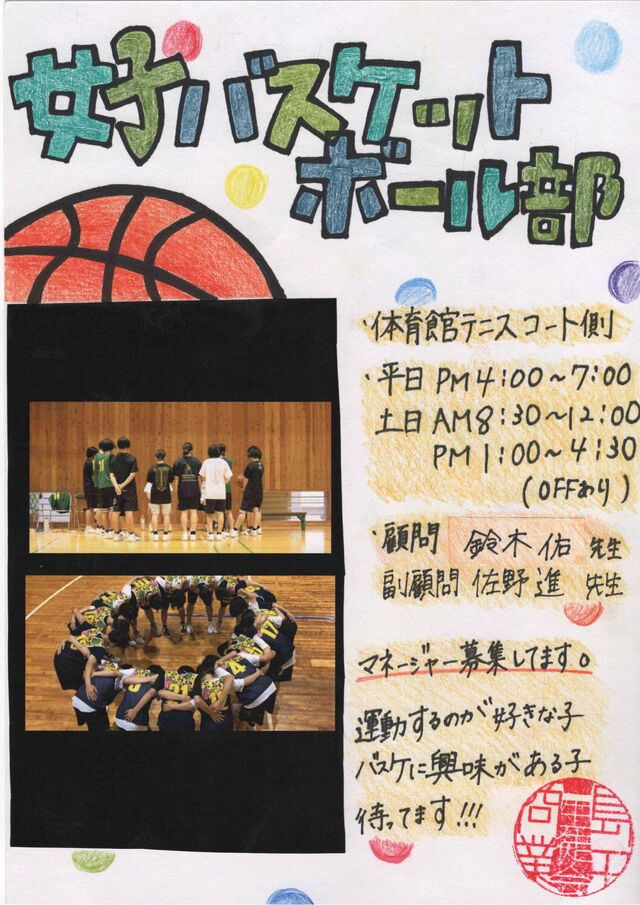 女子バスケット
ボール部
・体育館テニスコート側
・平日 PM4:00~7:00
土日 AM8:30~12:00
PM1:00~4:30
(OFFあり)
・顧問 鈴木佑 先生
副顧問 佐野進 先生
マネージャー募集してます。
運動するのが好きな子
バスケに興味がある子
待ってます!!!